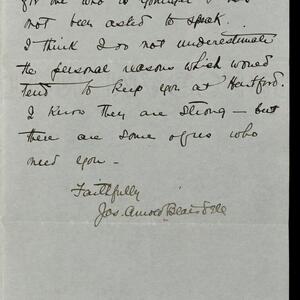 for one who is
not been asked to speak.
I think I do not underestimate
the personal reasons which would
tend to keep you at Hartford.
I know they are strong — but
there are some of us who
need you —
Faithfully
Jas. Arnold Blaisdell